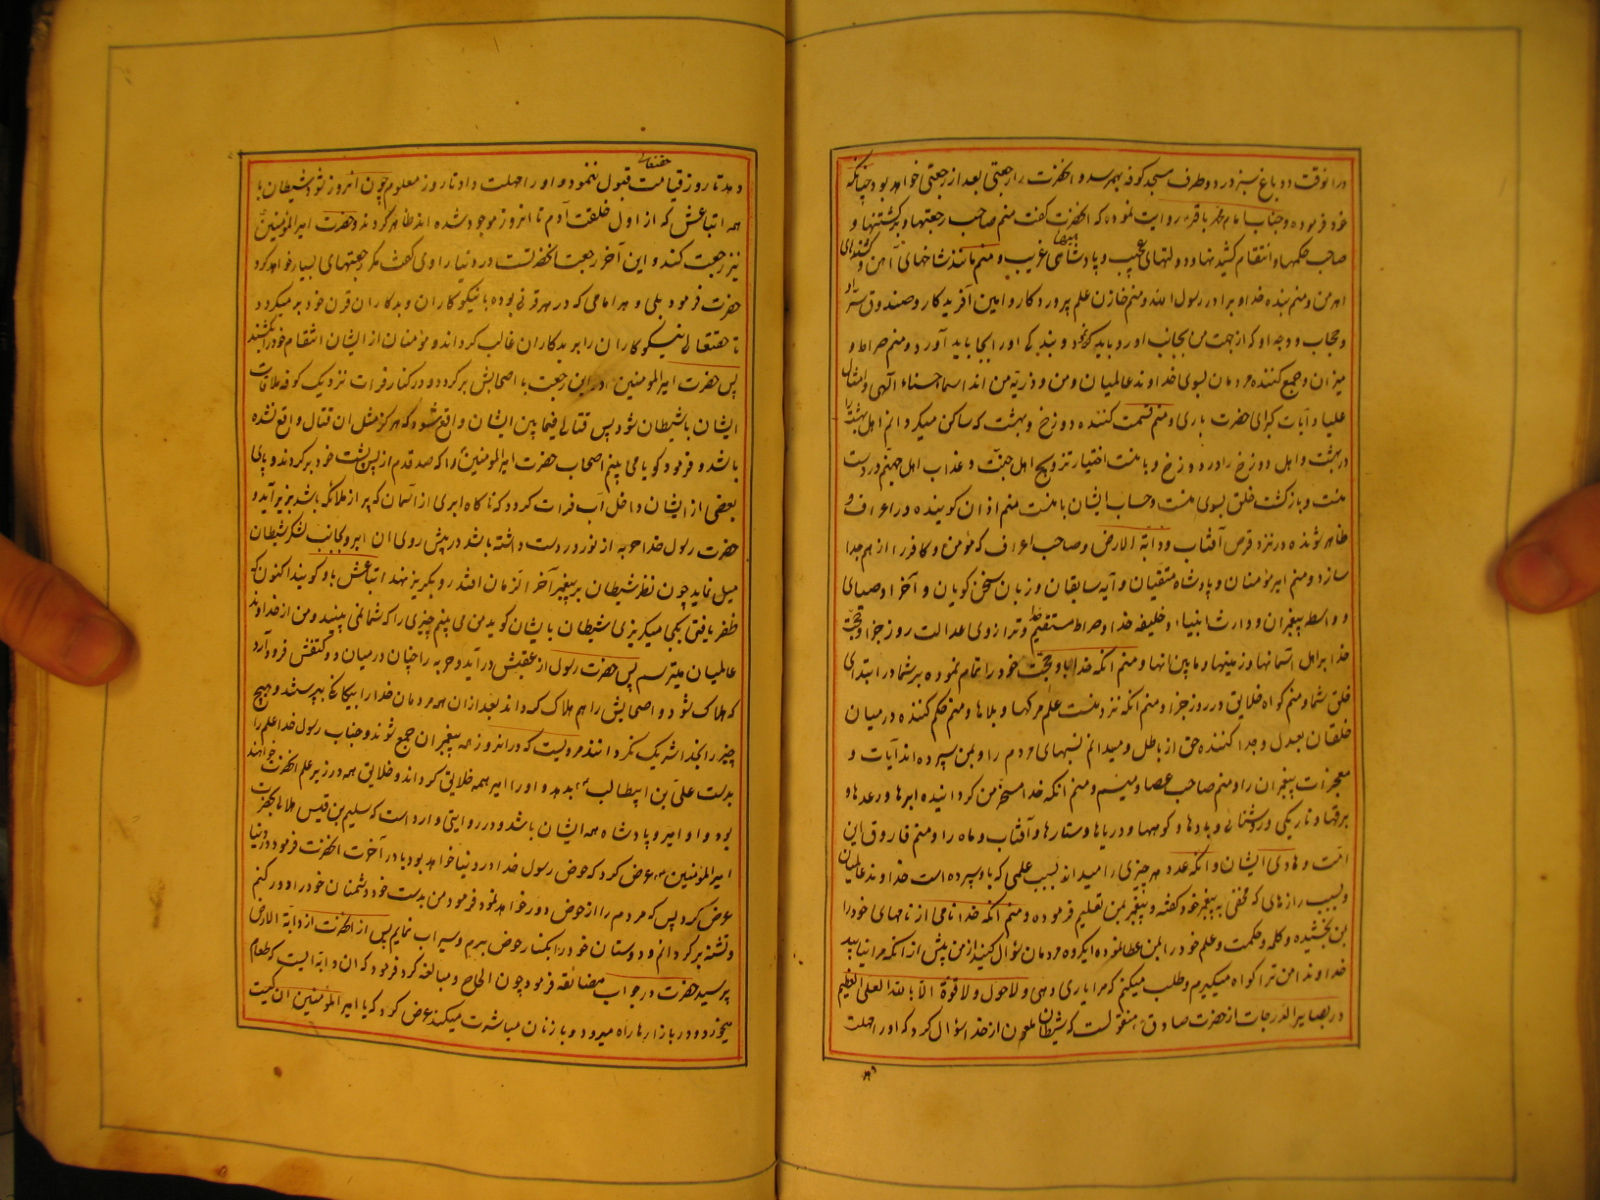 درانوقت دو باغ سبز در دو طرف مسجد کوفه بهم رسد و انحضرت را رجعتی بعد از رجعتی خواهد بود چنانکه
خود فرموده و جناب امام محمد باقر روایت نموده که انحضرت گفت منم صاحب رجعتها و برکشتنها و
صاحب حکمها و انتقام کشیدنها و دولتهای عجیب و پادشاهی غریب و منم مانند شاخهای آهن و
منم بنده خدا و برادر رسول الله و منم خازن علم پروردکار و امین آفریدکار و صندوق ستر
و حجاب و وجه او که از جهت من بجانب او رو باید کرد و بندکی او را بجا باید آورد و منم صراط و
میزان و جمع کننده مردمان بسوی خداوند عالمیان و من و ذریه من اند اسماء حسناء الهی و امثال
علیا و آیات کبرای حضرت باری و منم قسمت کننده دوزخ و بهشت که ساکن میکردانم اهل بهشت را
در بهشت و اهل دوزخ را در دوزخ و با منست اختیار تزویج اهل جنت و عذاب اهل جهنم در دست
منست و بازکشت خلق بسوی منست و حساب ایشان با منست منم اذان کوینده در اعراف و
ظاهر شونده در نزد قرص آفتاب و دابة الارض و صاحب اعراف که مؤمن و کافر را از هم جدا
سازد و منم امیر مؤمنان و پادشاه متقیان و آیه سابقان و زبان سخن کویان و آخر اوصیای
و واسطه پیغبران و وارث انبیاء و خلیفه خدا و صراط مستقیم و ترازوی عدالت روز جزا و حجت
خدا بر اهل آسمانها و زمینها و مابین انها و منم آنکه خدا با و حجت خود را تمام نموده بر شما در ابتدای
خلق شما و منم کواه خلایق در روز جزا و منم انکه نزد منست علم مرکها و بلاها و منم حکم کننده در میان
خلقان بعدل و جدا کننده حق از باطل و میدانم نسبهای مردم را و بمن سپرده اند آیات و
معجزات پیغبران را و منم صاحب عصا و میسم و منم انکه خدا مسخر من کردانیده ابرها و رعدها و
برقها و تاریکی و روشنائی و بادها و کوهها و دریاها و ستارها و آفتاب و ماه را و منم فاروق این
امت و هادی ایشان و انکه عدد هر چیزی را میداند بسبب علمی که باو سپرده است خداوند عالمیان
و بسبب رازهای که مخفی به پیغبر خود کفته و پیغبر بمن تعلیم فرموده و منم انکه خدا نامی از نامهای خود را
بمن بخشیده و کلمه و حکمت و علم خود را بمن عطا نموده ایکروه مردمان سؤال کنید از من پیش از انکه مرا نیابید
خداوندا من ترا کواه میکیرم و طلب میکنم که مرا یاری دهی و لا حول و لا قوة الا بالله العلی العظیم
در بصایر الدرجات از حضرت صادق منقولست که شیطان ملعون از خدا سؤال کرد که او را مهلت
حقتعالی
دهد تا روز قیامت قبول ننمود و او را مهلت داد تا روز معلوم چون انروز شود شیطان با
همه اتباعش که از اول خلقت آدم تا انروز موجود شده اند ظاهر کردند و حضرت امیر المؤمنین
نیز رجعت کند و این آخر رجعت انحضرتست در دنیا راوی کفت مکر رجعتهای بسیار خواهد کرد
حضرت فرمود بلی و هر امامی که در هر قرنی بوده با نیکوکاران و بدکاران قرن خود بر میکردد
تا حقتعالی نیکوکاران را بر بدکاران غالب کرداند و مؤمنان از ایشان انتقام خود را بکشند
پس حضرت امیر المؤمنین در این رجعت با اصحابش بر کردد و در کنار فرات نزدیک کوفه ملاقات
ایشان با شیطان شود پس قتالی فیما بین ایشان واقع شود که هرکز مثل ان قتال واقع نشده
باشد و فرمود کویا می بینم اصحاب حضرت امیر المؤمنین را که صد قدم از پس پشت خود بر کردند و پای
بعضی از ایشان داخل آب فرات کردد که ناکاه ابری از آسمان که پر از ملائکه باشد بزیر آید و
حضرت رسول خدا حربه از نور در دست داشته باشد در پیش روی ان ابر و بجانب لشکر شیطان
میل نماید چون نظر شیطان بر پیغبر آخر الزمان افتد رو بکریز نهد اتباعش باو کویند اکنون که
ظفر یافتی بکجا میکریزی شیطان بایشان کوید من می بینم چیزی را که شما نمی بینید و من از خداوند
عالمیان میترسم پس حضرت رسول از عقبش در آید و حربه را چنان در میان دو کتفش فرود آرد
که هلاک شود و اصحابش را هم هلاک کرداند بعد از ان همه مردمان خدا را بیکانکی بپرستند و هیچ
چیز را بخدا شریک نکردانند مرویست که در انروز همه پیغبران جمع شوند و جناب رسول خدا علم را
بدست علی بن ابیطالب بدهد و او را امیر همه خلایق کرداند و خلایق همه در زیر علم انحضرت خواهند
بود و او امیر و پادشاه همه ایشان باشد و در روایتی وارد است که سلیم بن قیس هلالی بحضرت
امیر المؤمنین عرض کرد که حوض رسول خدا در دنیا خواهد بود یا در آخرت انحضرت فرمود در دنیا
عرض کرد پس که مردم را از حوض دور خواهد نمود فرمود من بدست خود دشمنان خود را دور کنم
و تشنه بر کردانم و دوستان خود را بکنار حوض ببرم و سیراب نمایم پس از انحضرت از دابة الارض
پرسید حضرت در جواب مضائقه فرمود چون الحاح و مبالغه کرد فرمود که ان دابه ایست که طعام
میخورد و در بازارها راه میرود و با زنان مباشرت میکند عرض کرد که یا امیر المؤمنین ان کیست